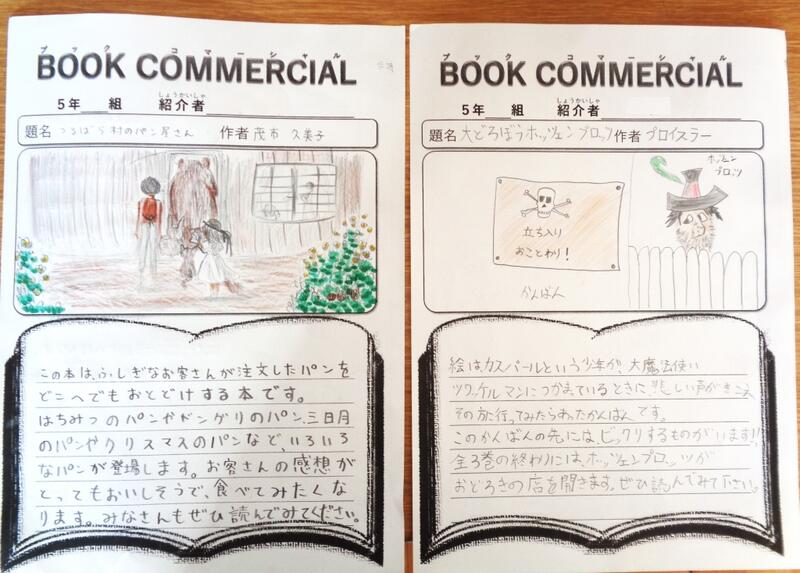 ブックコマーシャル
BOOK COMMERCIAL
しょうかいしゃ
5年 組 紹介者
題名 つるばら村のパン屋さん 作者 茂市 久美子
この本は、ふしぎなお客さんが注文したパンを
どこへでもおとどけする本です。
はちみつのパンやドングリのパン、三日月
のパンやクリスマスのパンなど、いろいろ
なパンが登場します。お客さんの感想が
とってもおいしそうで、食べてみたくな
ります。みなさんもぜひ読んでみてください。
ブックコマーシャル
BOOK COMMERCIAL
しょうかいしゃ
5年 組 紹介者
題名 大どろぼうホッツェンプロッツ 作者 プロイスラー
ホッツェン
プロッツ
立ち入り
おことわり!
かんばん
絵はカスパールという少年が、大魔法使い
ツワッケルマンにつかまっているときに、悲しい声がきこえ
その 行ってみたらあったかんばんです。
このかんばんの先には、ビックリするものがいます!!
全3巻の終わりには、ホッツェンプロッツが
おどろきの店を開きます。ぜひ読んでみて下さい。